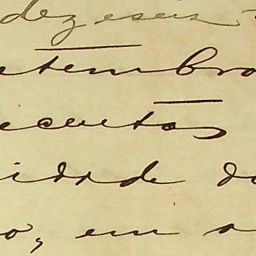 dezeseis
etembro
ecentos
idade do
o, em a